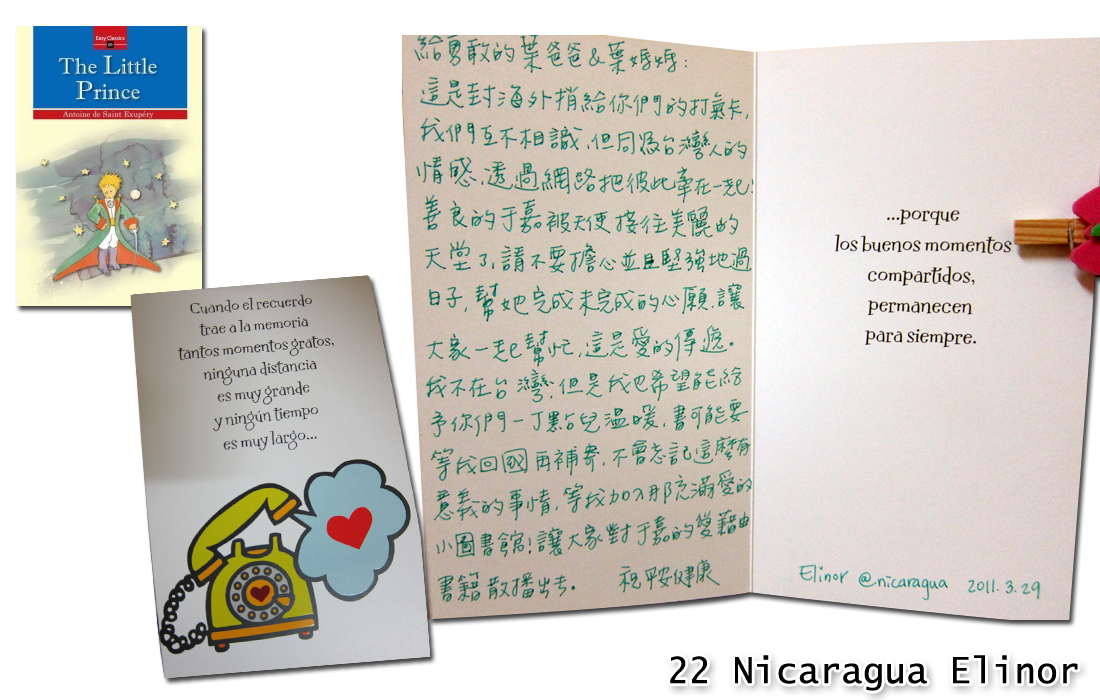 Easy Classics
The Little
Prince
Antoine de Saint Exupéry
Cuando el recuerdo
trae a la memoria
tantos momentos gratos,
ninguna distancia
es muy grande
y ningún tiempo
es muy largo...
給勇敢的葉爸爸&葉媽媽:
這是封海外捎給你們的打氣卡,
我們互不相識,但同為台灣人的
情感,透過網路把彼此牽在一起!
善良的于嘉被天使接往美麗的
天堂了,請不要擔心並且堅強地過
日子,幫她完成未完成的心願,讓
大家一起幫忙,這是愛的傳遞。
我不在台灣,但是我也希望能給
予你們一丁點兒溫暖,書可能要
等我回國再補寄,不會忘記這麼有
意義的事情,等我加入那充滿愛的
小圖書館!讓大家對于嘉的愛藉由
書籍散播出去。 祝平安健康
...porque
los buenos momentos
compartidos,
permanecen
para siempre.
Elinor @nicaragua 2011.3.29
22 Nicaragua Elinor